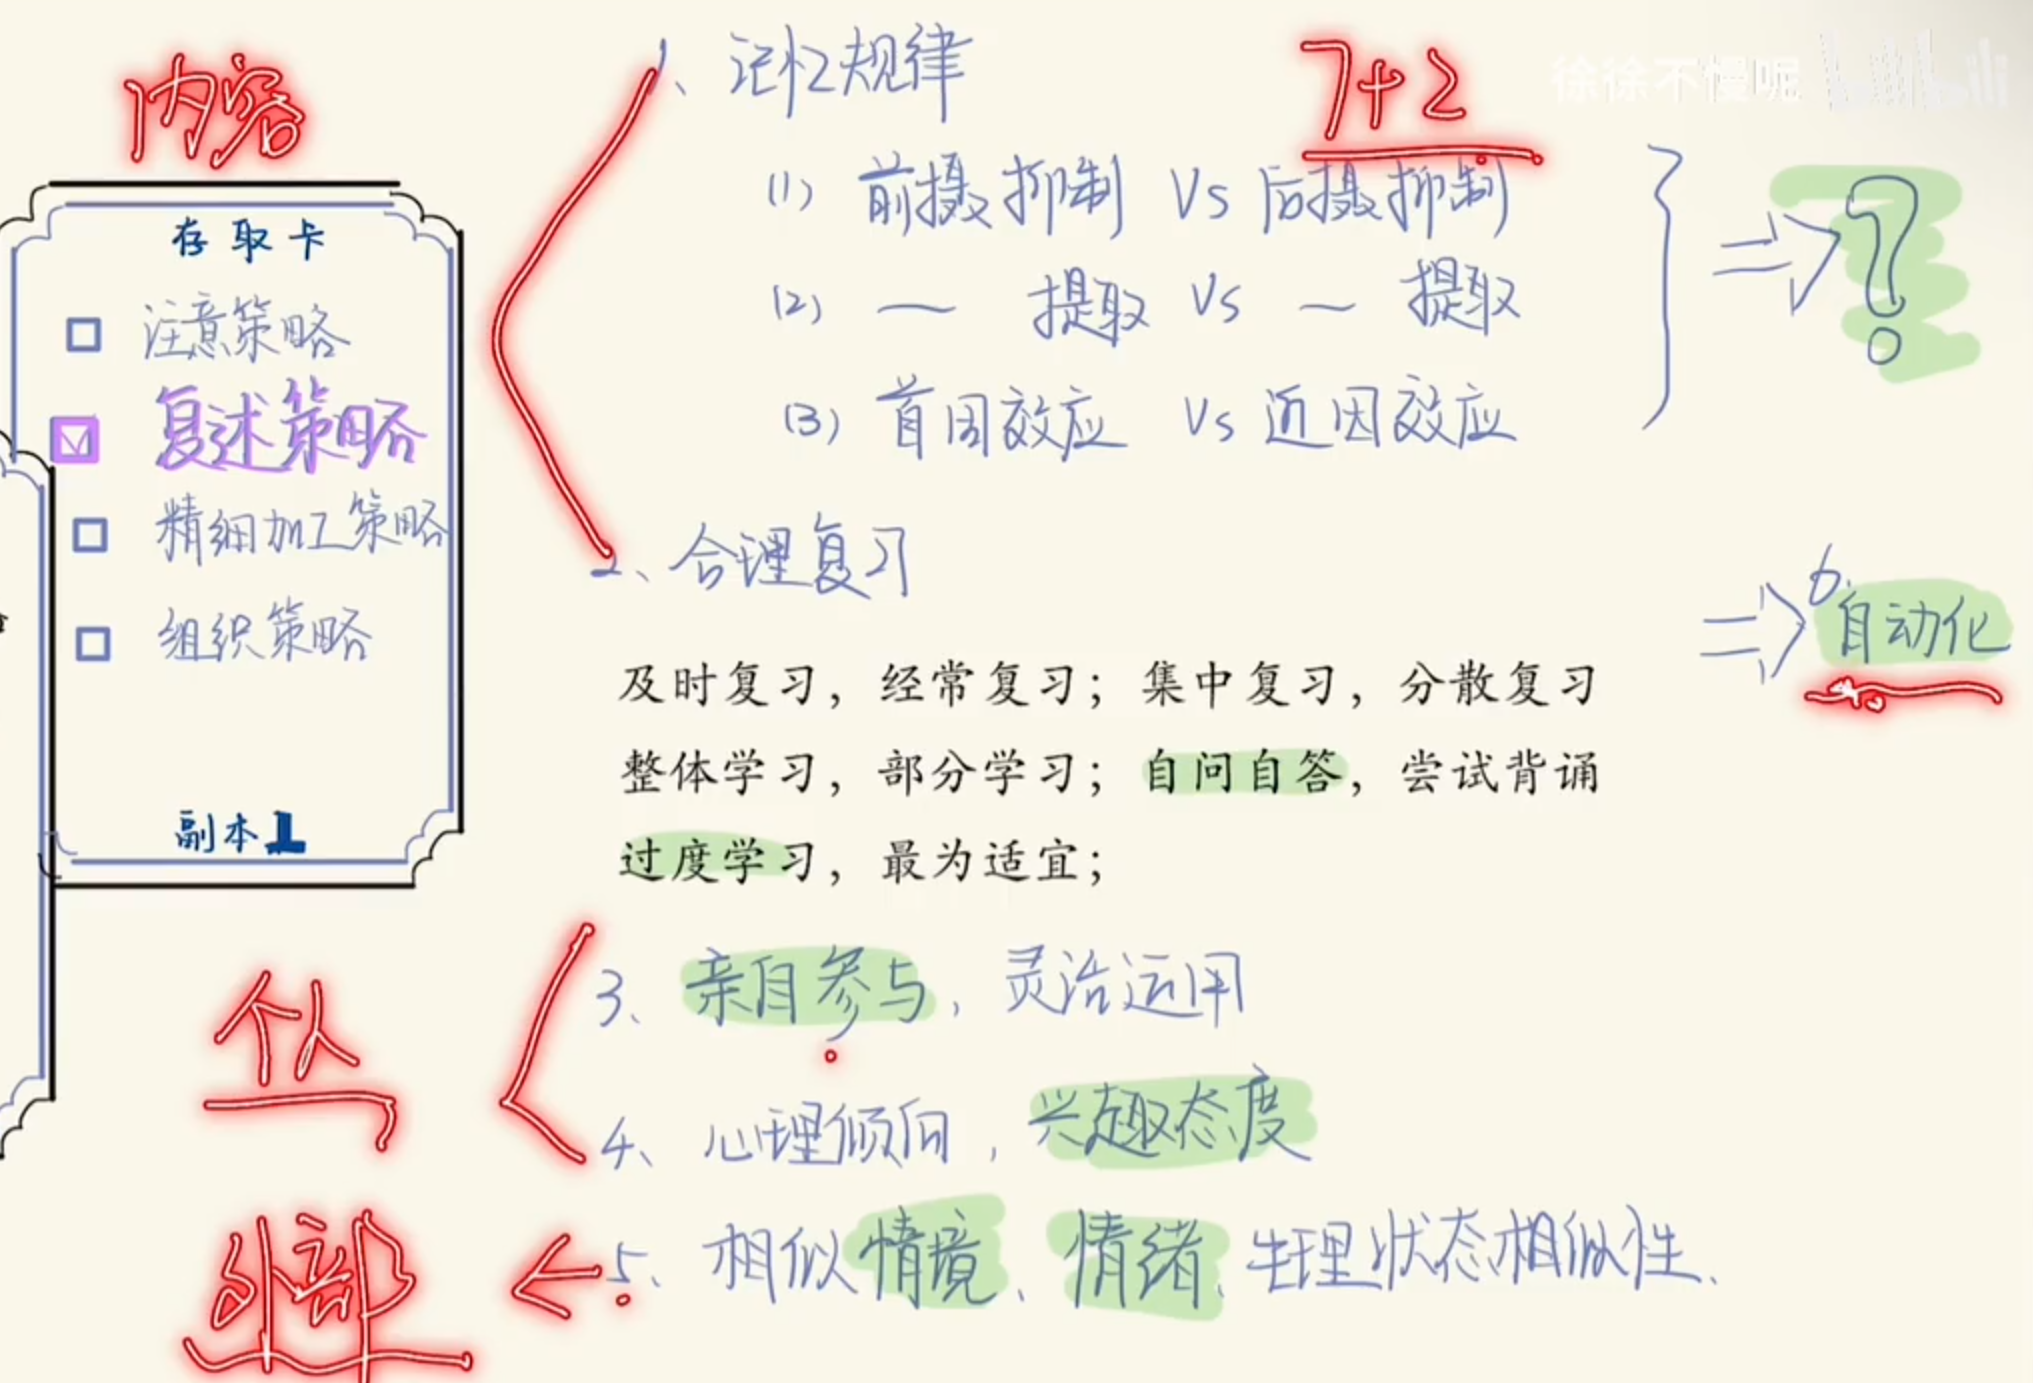 内容
存取卡
注意策略
复述策略
精细加工策略
组织策略
副本1
1、记忆规律
7+2
徐徐不慢呢
(1) 前摄抑制 Vs 后摄抑制
(2) — 提取 Vs — 提取
(3) 首因效应 Vs 近因效应
?
2、合理复习
及时复习，经常复习；集中复习，分散复习
整体学习，部分学习；自问自答，尝试背诵
过度学习，最为适宜；
6.自动化
个人
3、亲自参与，灵活运用
4、心理倾向，兴趣态度
外部
5、相似情境、情绪、生理状态相似性、